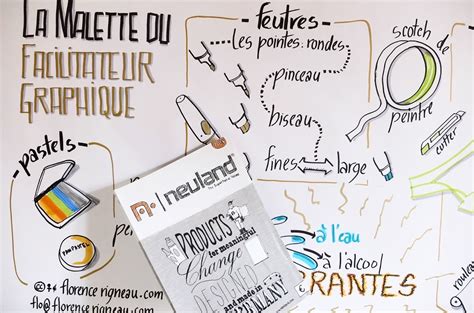 La Malette du
Facilitateur
Graphique
feutres
les pointes: rondes
pinceau
biseau
fines large
scotch de
peintre
cutter
pastels
PanPastel
neuland
PRODUCTS
for meaningful
Change
DESIGNED
and made in
GERMANY
à l'eau
à l'alcool
florence rigneau.com
flo@florencerigneau.com